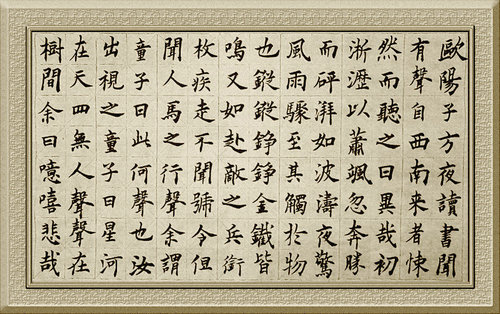 歐陽子方夜讀書聞
有聲自西南来者悚
然而聽之曰異哉初
淅瀝以蕭颯忽奔騰
而砰湃如波濤夜驚
風雨驟至其觸於物
也鏦鏦錚錚金鐵皆
鳴又如赴敵之兵銜
枚疾走不聞號令但
聞人馬之行聲余謂
童子曰此何聲也汝
出視之童子曰星河
在天四無人聲聲在
樹間余曰噫嘻悲哉